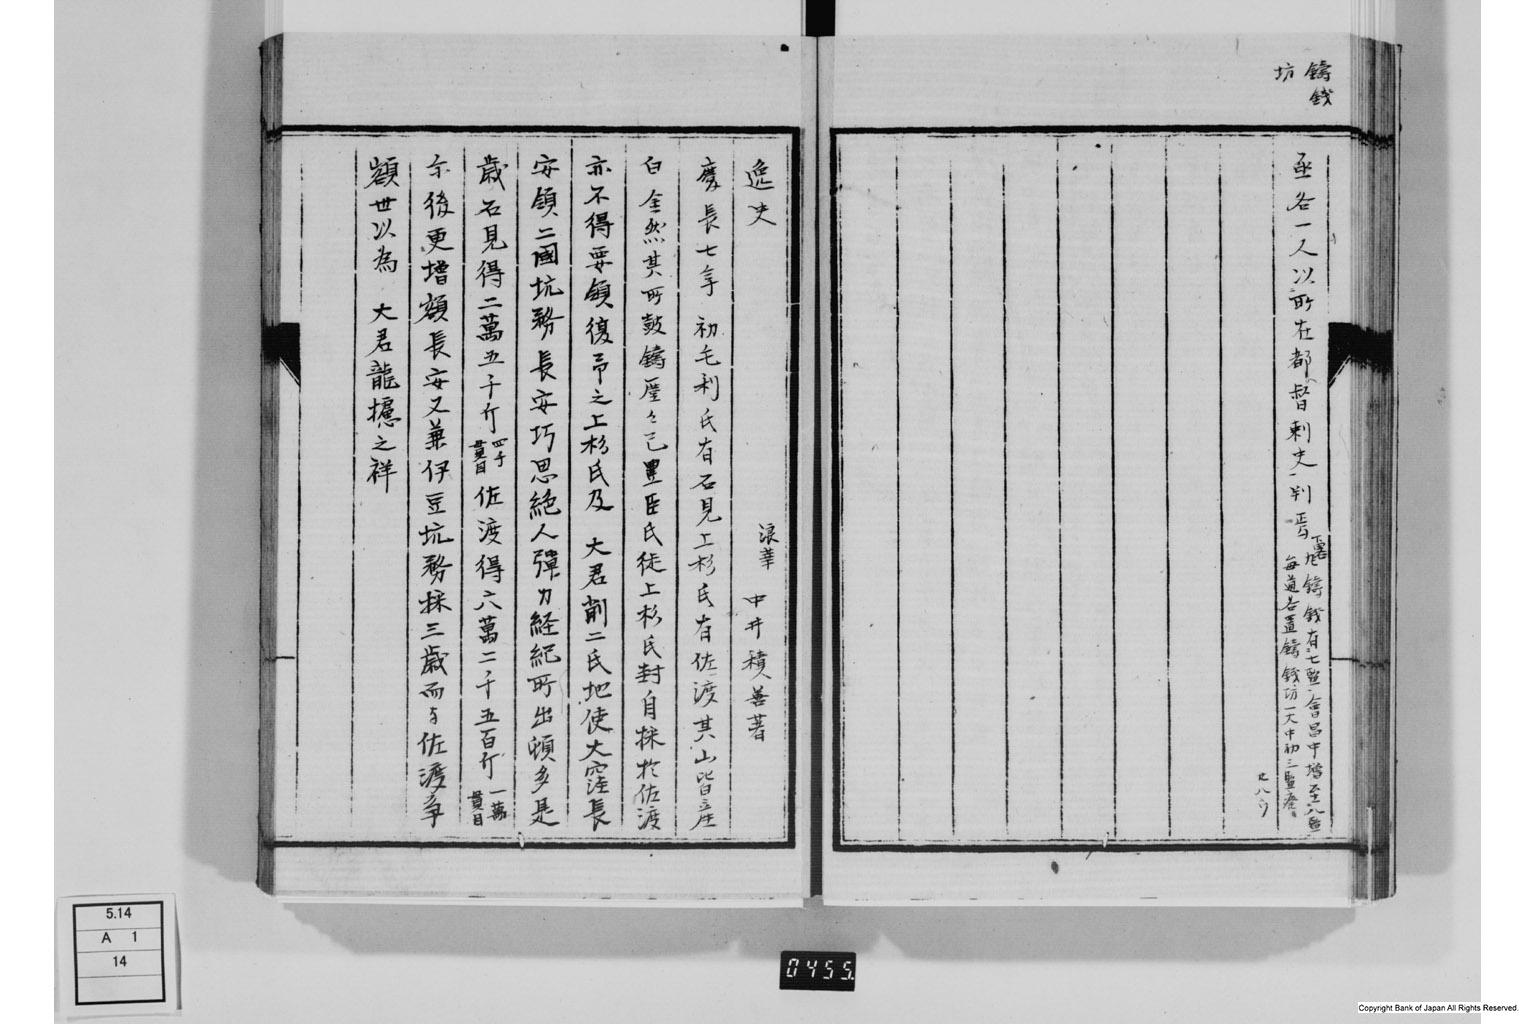 鑄錢
坊
丞各一人以所在都督刺史判焉
鑄錢有七監會昌中增至八監
每道各置鑄錢坊一大中初三監廢
逸史
浪華 中井積善著
慶長七年 初毛利氏有石見上杉氏有佐渡其山皆產
白金然其所鼓鑄厪々已豐臣氏徙上杉氏封自採於佐渡
亦不得要領復予之上杉氏及 大君削二氏地使大窪長
安領二國坑務長安巧思絕人殫力経紀所出頓多是
歲石見得二萬五千斤四千貫目佐渡得六萬二千五百斤一萬貫目
尓後更增額長安又兼伊豆坑務採三歲而与佐渡爭
額世以為 大君龍擄之祥
5.14
A 1
14
0455.
Copyright Bank of Japan All Rights Reserved.